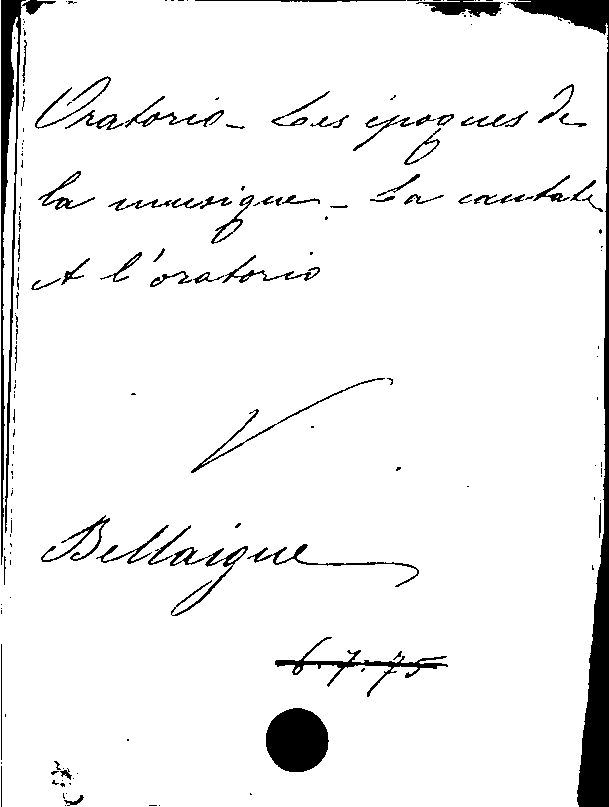 Oratorio - Les époques de
la musique. - La cantate
et l'oratorio
V.
Bellaigue
6.7.75